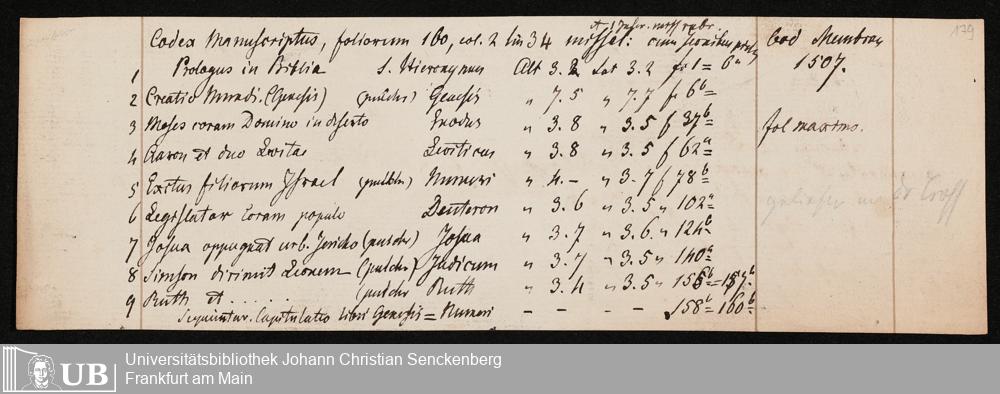 139
Codex Manuscriptus, foliorum 160, col. 2 lin 34 missal: cum Cod Membran
1 Prologus in Biblia S. Hieronymus Alt 3.2 Lat 3.2 fo 1 = 6 1507.
2 Creatio Mundi. (Genesis) (pulchr) Genesis " 7.5 " 7.7 f 6b
3 Moses coram Domino in deserto Exodus " 3.8 " 3.5 f 37b fol maximo.
4 Aaron et duo Levitae Leviticus " 3.8 " 3.5 f 62a
5 Exitus filiorum Israel (pulchr) Numeri " 4.– " 3.7 f 78b
6 Legislator coram populo Deuteron " 3.6 " 3.5 " 102a
7 Josua oppugnat urb. Jericho (pulchr) Josua " 3.7 " 3.6 " 124b
8 Simson dirimit Leonem (pulchr) Judicum " 3.7 " 3.5 " 140a
9 Ruth et . . . . . . (pulchr Ruth " 3.4 " 3.5 " 155b = 157b
Sequuntur. Capitulatio libri Genesis = Numeri – – – – 158b 160b
UB Universitätsbibliothek Johann Christian Senckenberg
Frankfurt am Main